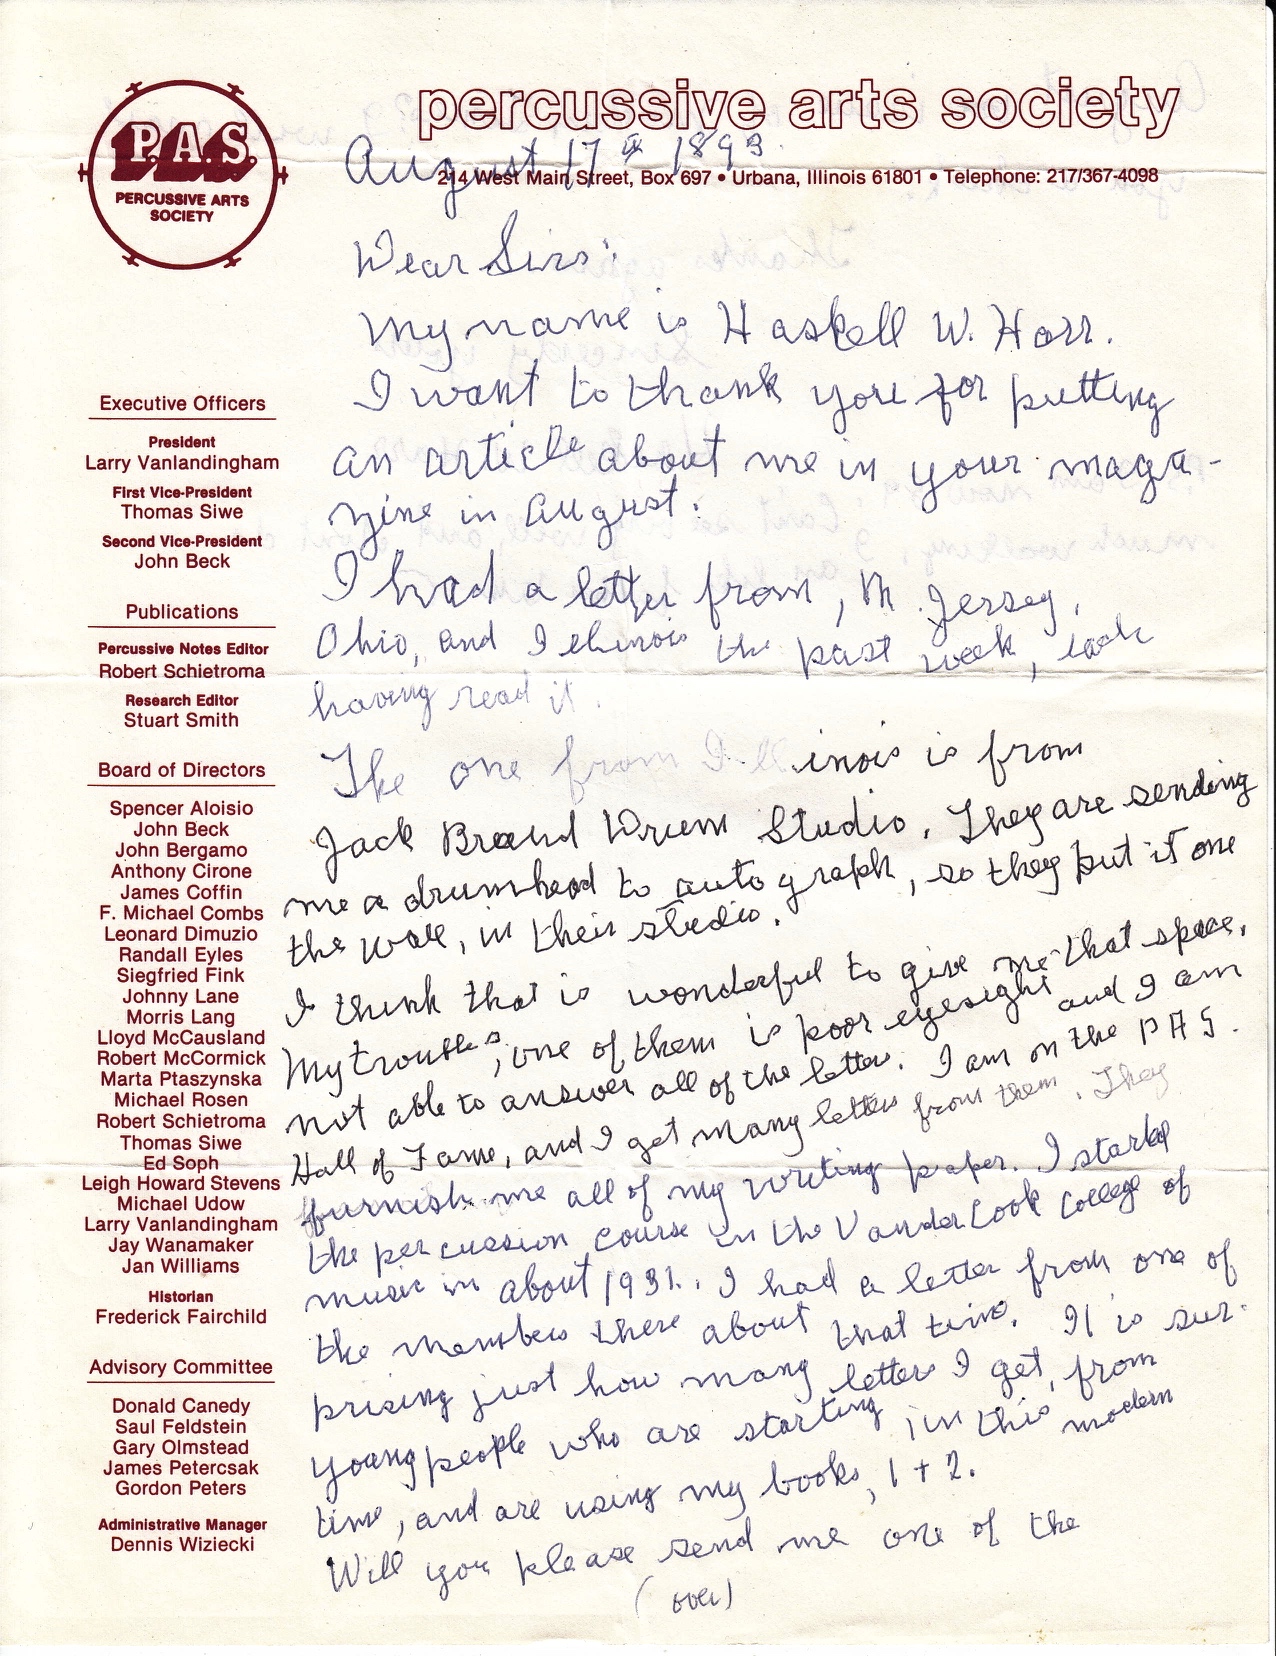 percussive arts society
214 West Main Street, Box 697 • Urbana, Illinois 61801 • Telephone: 217/367-4098
P.A.S.
PERCUSSIVE ARTS
SOCIETY
Executive Officers
President
Larry Vanlandingham
First Vice-President
Thomas Siwe
Second Vice-President
John Beck
Publications
Percussive Notes Editor
Robert Schietroma
Research Editor
Stuart Smith
Board of Directors
Spencer Aloisio
John Beck
John Bergamo
Anthony Cirone
James Coffin
F. Michael Combs
Leonard Dimuzio
Randall Eyles
Siegfried Fink
Johnny Lane
Morris Lang
Lloyd McCausland
Robert McCormick
Marta Ptaszynska
Michael Rosen
Robert Schietroma
Thomas Siwe
Ed Soph
Leigh Howard Stevens
Michael Udow
Larry Vanlandingham
Jay Wanamaker
Jan Williams
Historian
Frederick Fairchild
Advisory Committee
Donald Canedy
Saul Feldstein
Gary Olmstead
James Petercsak
Gordon Peters
Administrative Manager
Dennis Wiziecki
August 17th 1893.
Dear Sirs:
My name is Haskell W. Harr.
I want to thank you for putting
an article about me in your maga-
zine in August.
I had a letter from, N. Jersey,
Ohio, and Illinois the past week,
having read it.
The one from Illinois is from
Jack Brand Drum Studio. They are sending
me a drumhead to autograph, so they put it one
the wall, in their studio.
I think that is wonderful to give me that space.
My troubles, one of them is poor eyesight and I am
not able to answer all of the letters. I am on the PAS.
Hall of Fame, and I get many letters from them. They
furnish me all of my writing paper. I started
the percussion course in the VanderCook College of
music in about 1931. I had a letter from one of
the members there about that time. It is sur-
prising just how many letters I get, from
young people who are starting in this modern
time, and are using my books, 1 + 2.
Will you please send me one of the
(over)